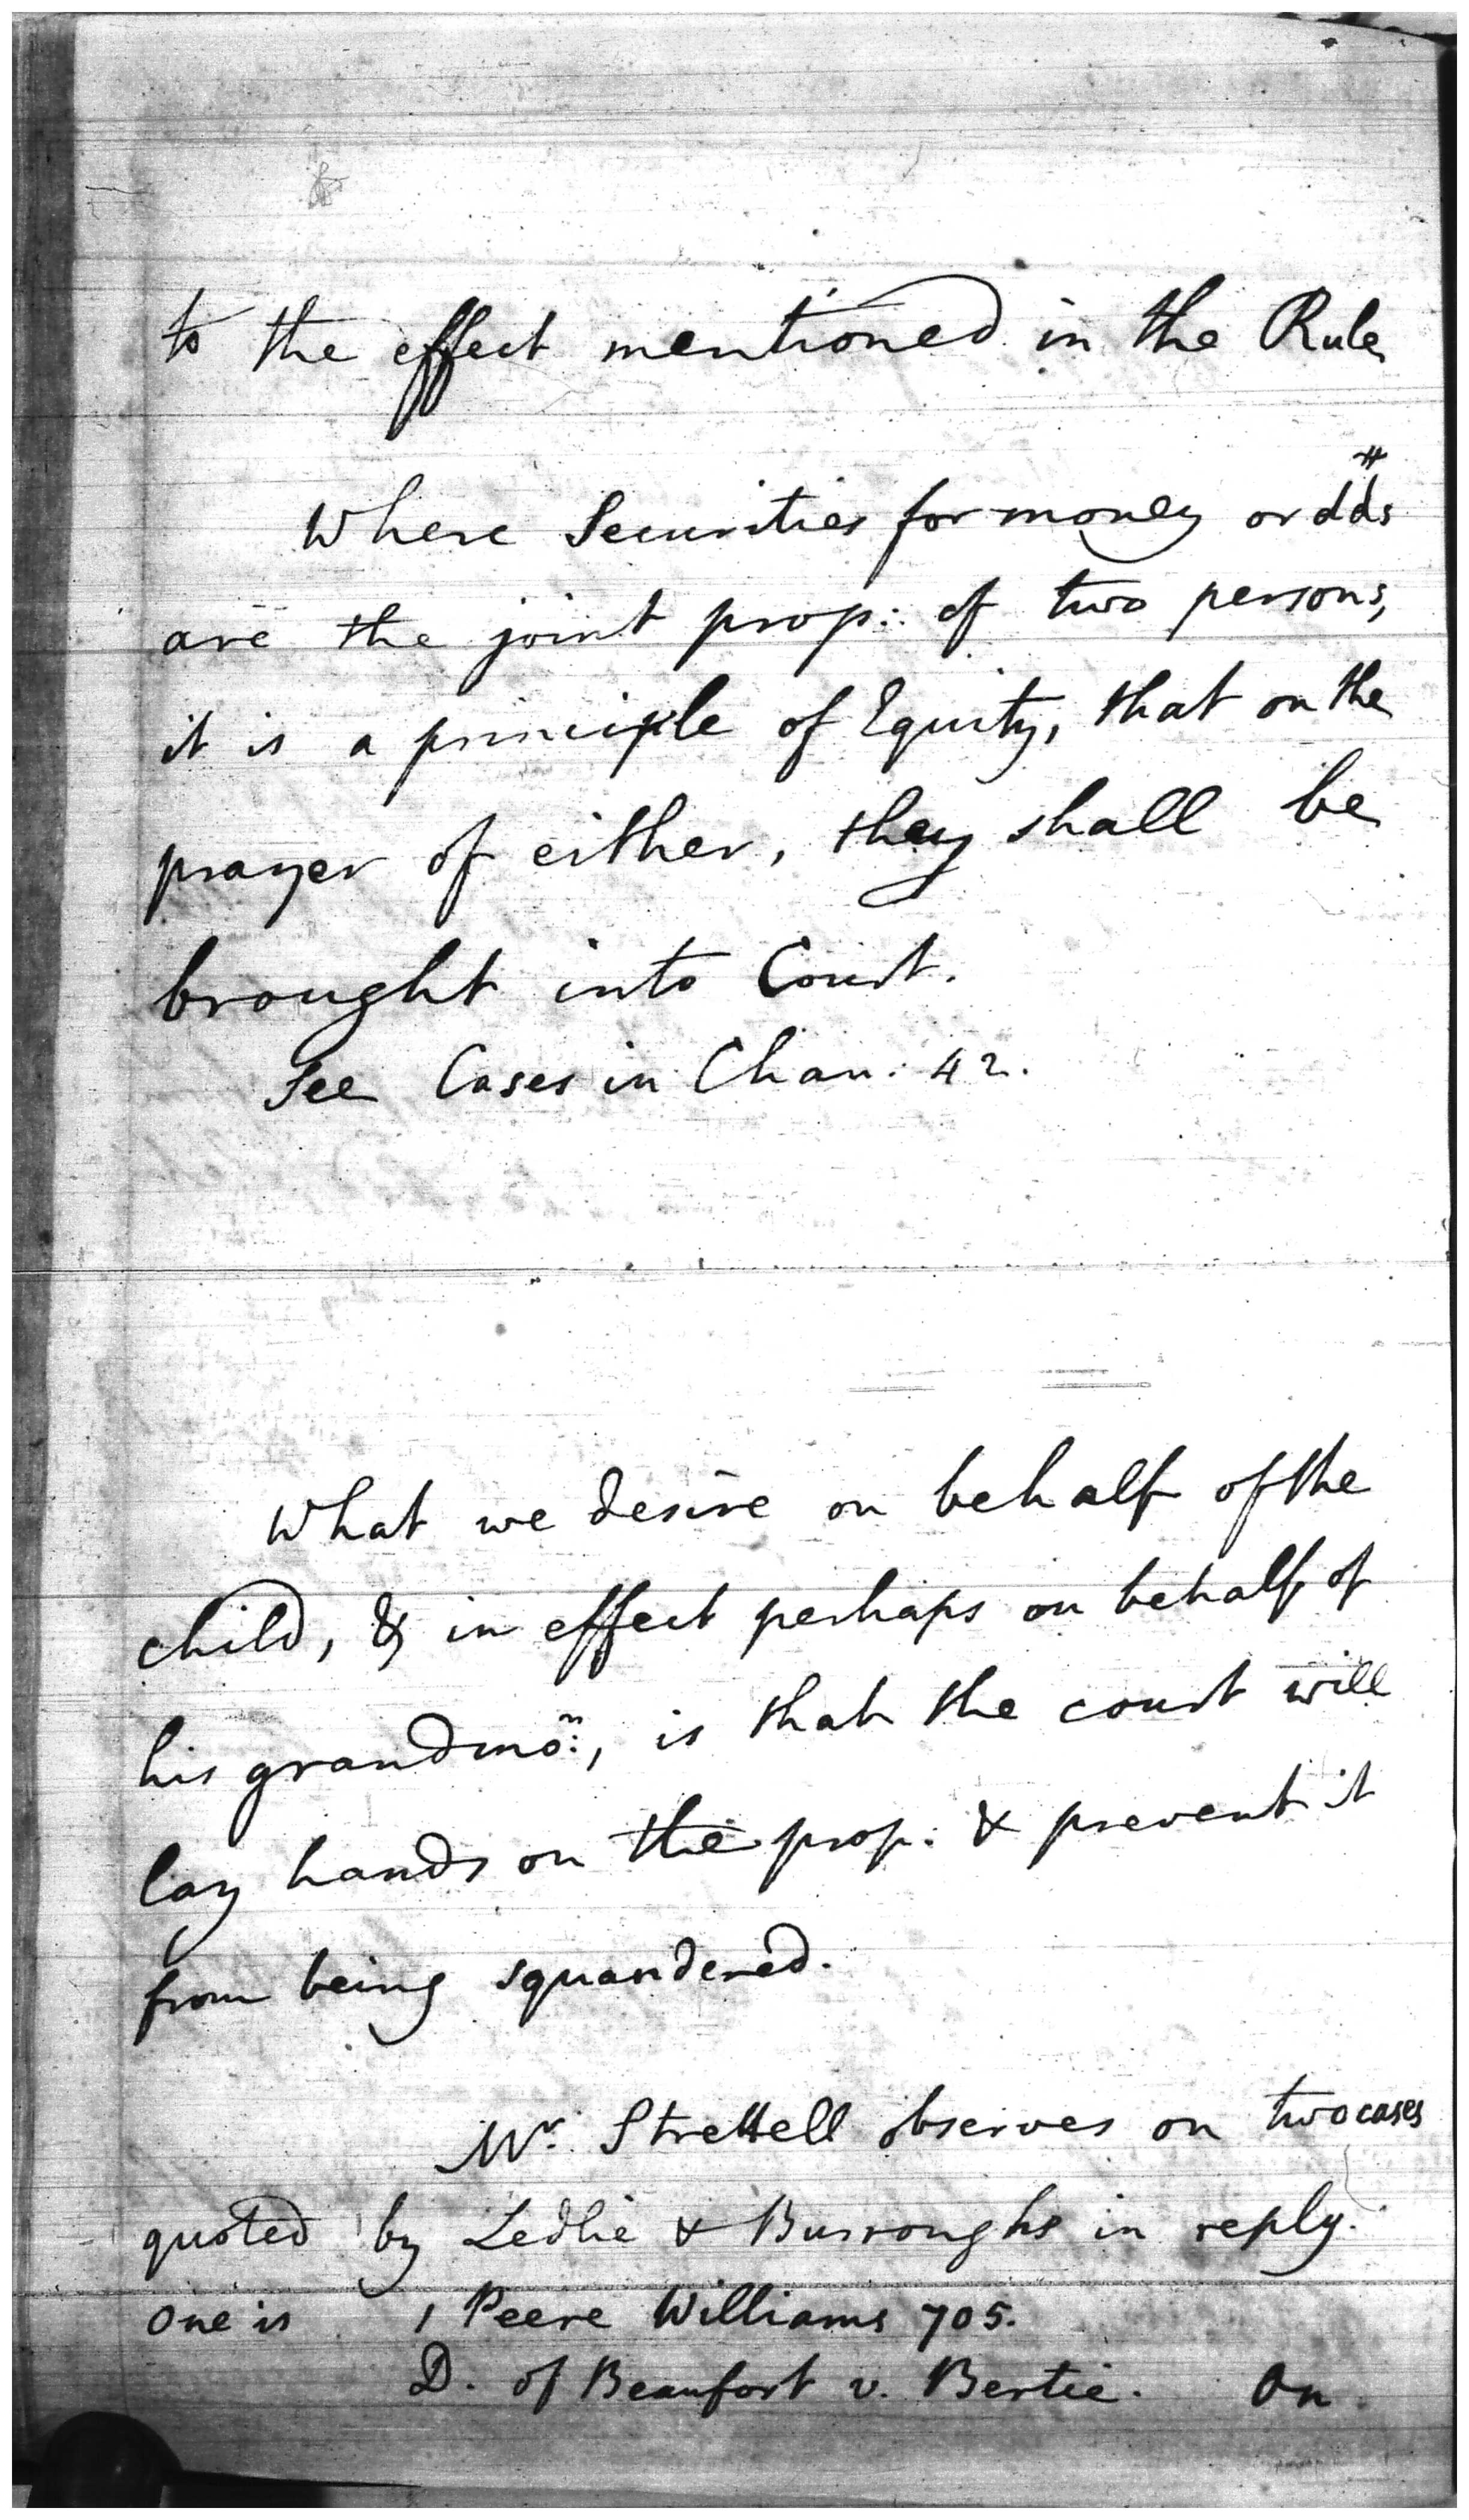 to the effect mentioned in the Rule
Where Securities for money or dds
are the joint prop: of two persons,
it is a principle of Equity, that on the
prayer of either, they shall be
brought into Court.
See Cases in Chan: 42.
What we desire on behalf of the
child, & in effect perhaps on behalf of
his grandmor:, is that the court will
lay hands on the prop: & prevent it
from being squandered.
Mr. Strettell observes on two cases
quoted by Ledlie & Burroughs in reply.
One is 1 Peere Williams 705.
D. of Beaufort v. Bertie. On